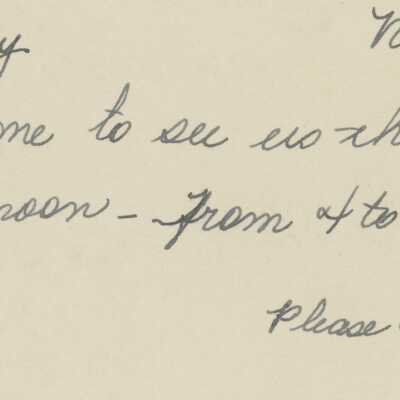 y
me to see us th
noon - from 4 to
Please